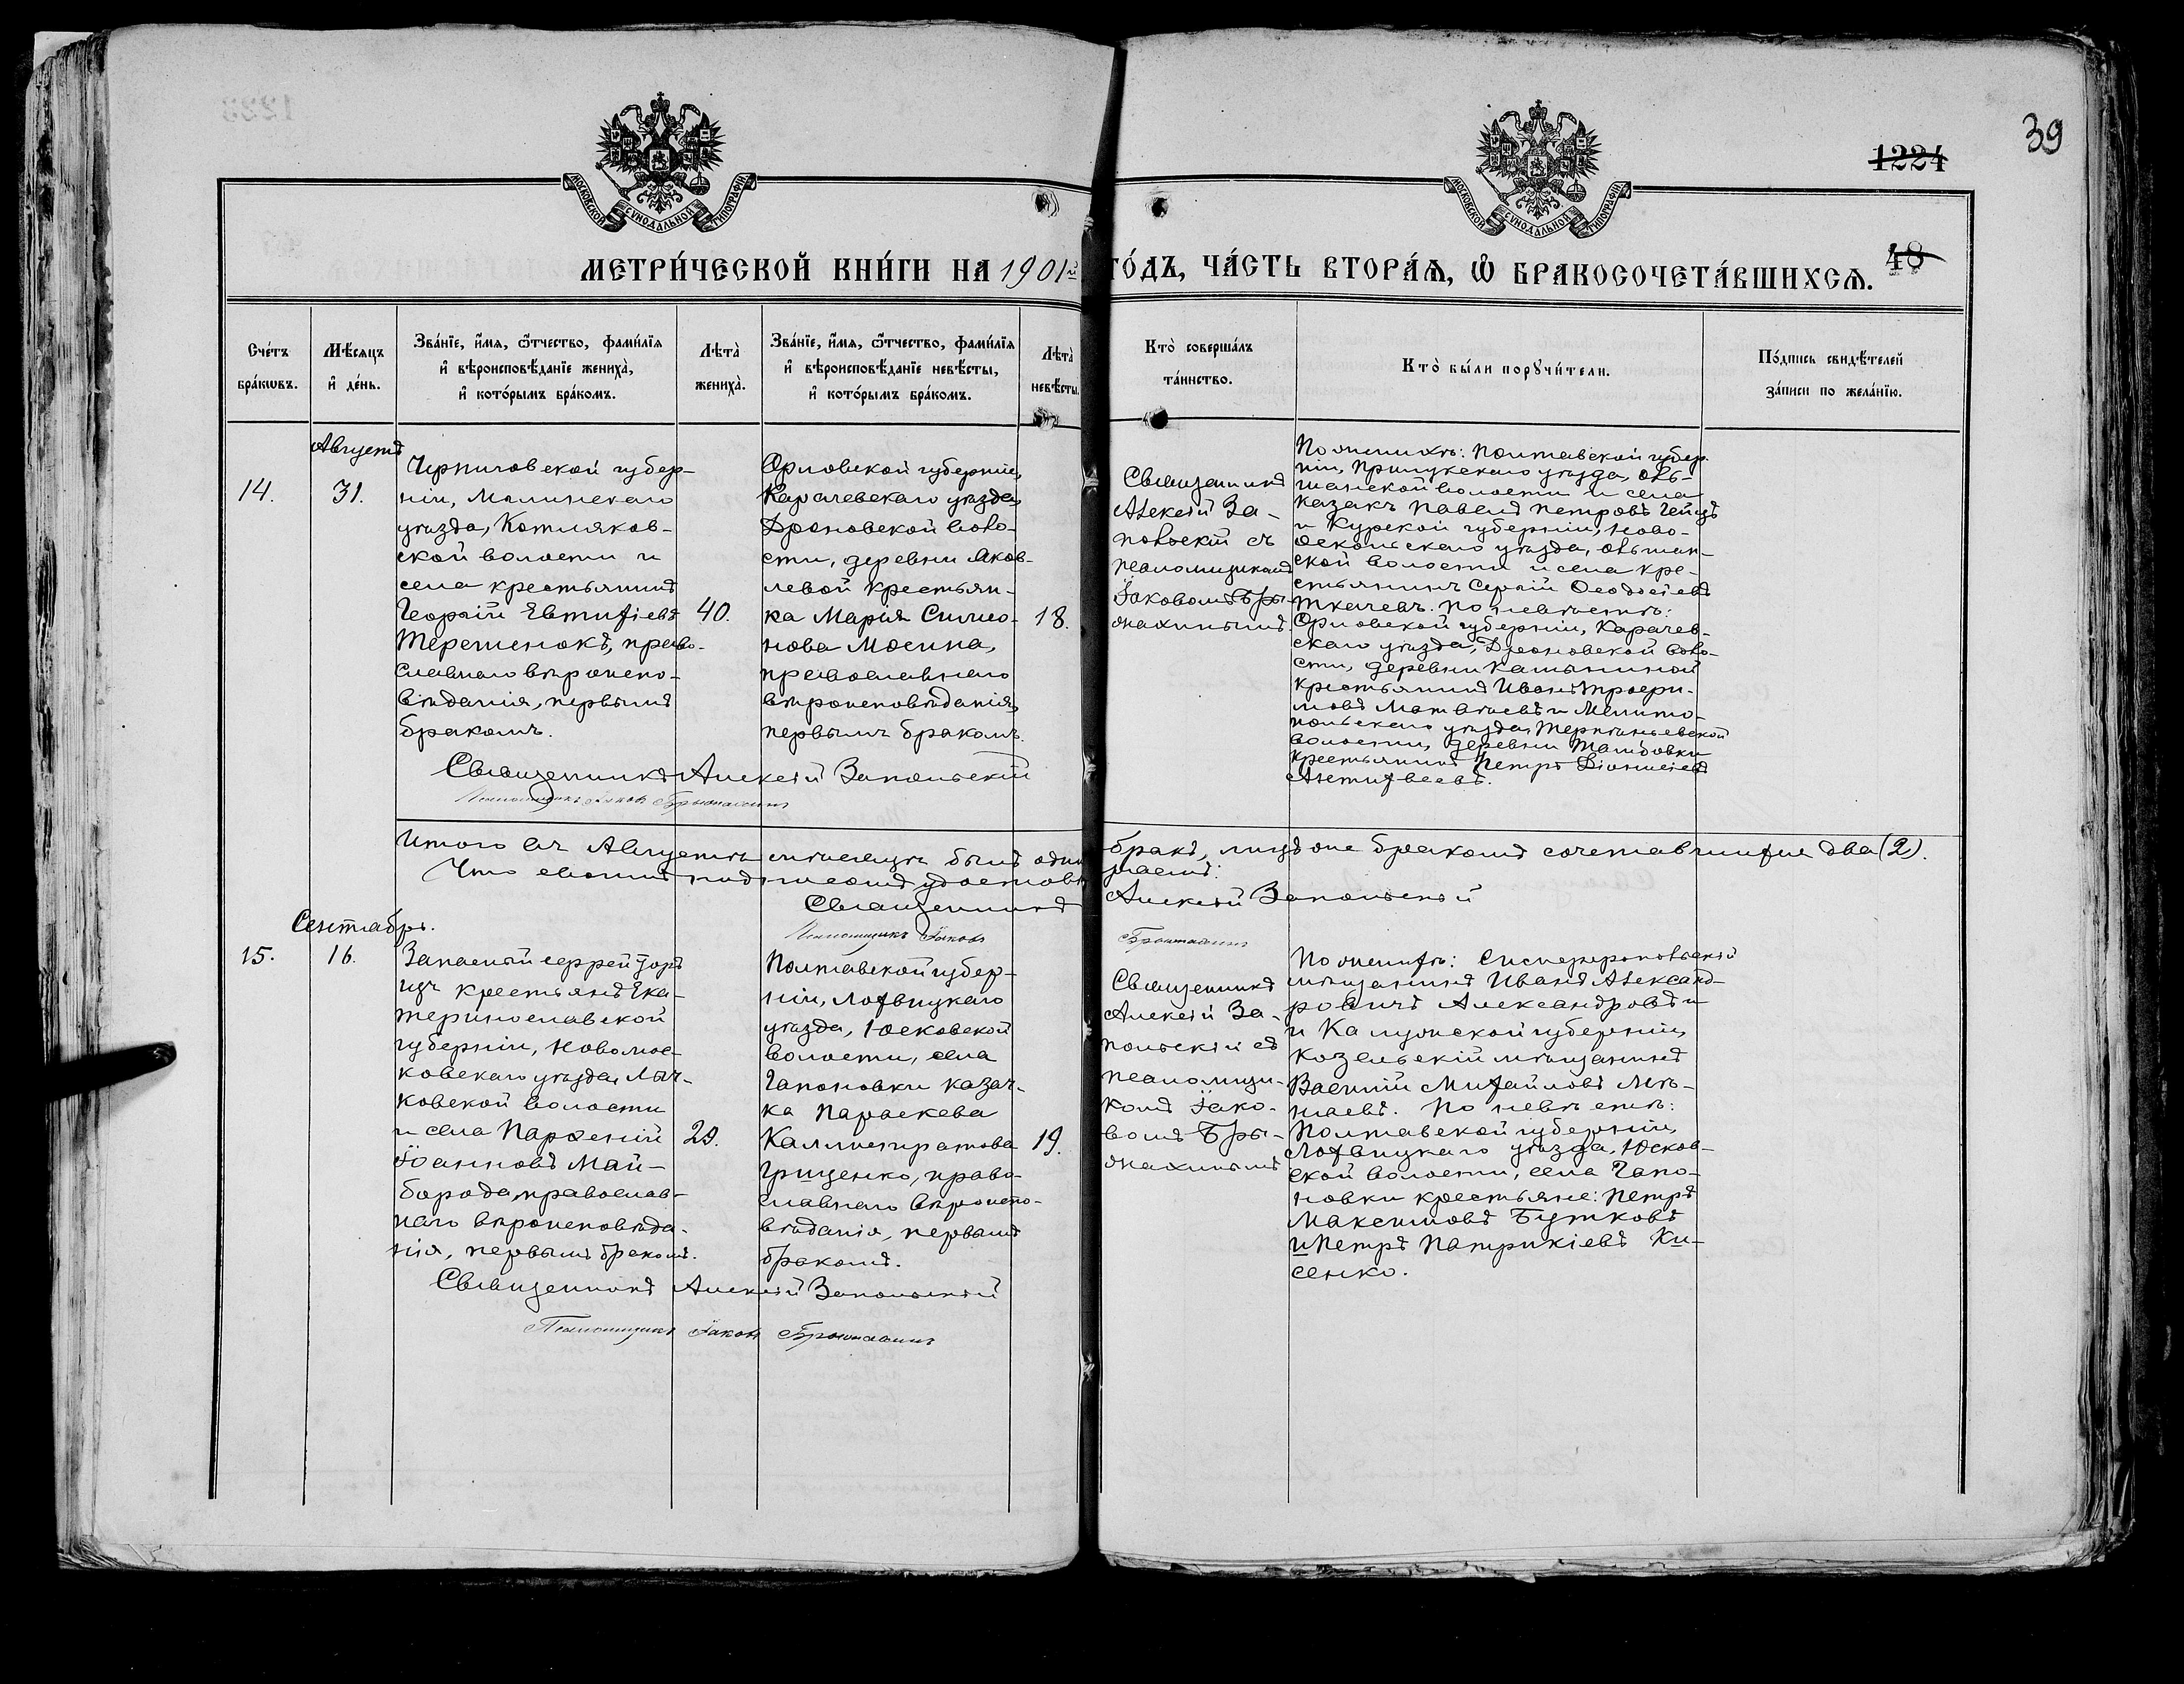 39
1224
МОСКОВСКОЙ СУНОДАЛЬНОЙ ТИПОГРАФІИ
МОСКОВСКОЙ СУНОДАЛЬНОЙ ТИПОГРАФІИ
МЕТРИ́ЧЕСКОЙ КНИ́ГИ НА 1901й ГО́ДЪ, ЧА́СТЬ ВТОРА́Ѧ, Ѽ БРАКОСОЧЕТА́ВШИХСѦ.
48
Сче́тъ
бра́кѡвъ.
Мѣ́сяцъ
и҆ де́нь.
Зва́нїе, и҆́мѧ, ѻ҆́тчество, фами́лїѧ
и҆ вѣроисповѣ́данїе жениха̀,
и҆ кото́рымъ бра́комъ.
Лѣта̀
жениха̀.
Зва́нїе, и҆́мѧ, ѻ҆́тчество, фами́лїѧ
и҆ вѣроисповѣ́данїе невѣ́сты,
и҆ кото́рымъ бра́комъ.
Лѣта̀
невѣ́сты.
Кто̀ соверша́лъ
та́инство.
Кто̀ бы́ли порꙋчи́тели.
По́дпись свидѣ́телей
за́писи по жела́нїю.
Августъ
14.
31.
Черниговской губер-
ніи, Мглинскаго
уѣзда, Котляков-
ской волости и
села крестьянинъ
Георгій Евтихіевъ
Терешенокъ, право-
славнаго вѣроиспо-
вѣданія, первымъ
бракомъ.
40.
Орловской губерніи,
Карачевскаго уѣзда,
Дроновской воло-
сти, деревни Яков-
левой крестьян-
ка Марія Симео-
нова Мосина,
православнаго
вѣроисповѣданія,
первымъ бракомъ.
18.
Священникъ
Алексій За-
польскій съ
псаломщикомъ
Іаковомъ Бры-
жахинымъ.
По женихѣ: Полтавской губер
ніи, Прилукскаго уѣзда, Оль-
шанской волости и села
казакъ Павелъ Петровъ
и Курской губерніи, Ново-
оскольскаго уѣзда, Ольшан-
ской волости и села кре-
стьянинъ Сергій Ѳеодосіевъ
Ткачевъ. По невѣстѣ:
Орловской губерніи, Карачев-
скаго уѣзда, Дроновской воло-
сти, деревни
крестьянинъ Иванъ
Матвѣевъ и Мелито-
польскаго уѣзда,
волости, деревни
крестьянинъ Петръ Діонисіевъ
Священникъ Алексій Запольскій
Псаломщикъ Іаковъ Брыжахинъ
Итого въ Августѣ мѣсяцѣ былъ одинъ бракъ, лицъ оне бракомъ сочетавшихся два (2).
Что своимъ подписомъ удостовѣ ряемъ:
Священникъ Алексій Запольскій
Псаломщикъ Іаковъ Брыжахинъ
Сентябрь.
15.
16.
Запасный ефрейторъ
изъ крестьянъ Ека-
теринославской
губерніи, Новомос-
ковскаго уѣзда, Лыч-
ковской волости
и села Парѳеній
Іоанновъ Май-
борода, православ-
наго вѣроисповѣда-
нія, первымъ бракомъ.
29.
Полтавской губер-
ніи, Лохвицкаго
уѣзда, Юсковской
волости, села
Гапоновки казач-
ка Параскева
Каллистратова
Грищенко, право-
славнаго вѣроиспо-
вѣданія, первымъ
бракомъ.
19.
Священникъ
Алексій За-
польскій съ
псаломщи-
комъ Іако-
вомъ Бры-
жахинымъ
По женихѣ: Симферопольскій
мѣщанинъ Иванъ Александ-
ровичъ Александровъ и
и Калужской губерніи,
Козельскій мѣщанинъ
Василій Михайловъ
По невѣстѣ:
Полтавской губерніи,
Лохвицкаго уѣзда, Юсков-
ской волости, села Гапо-
новки крестьяне: Петръ
Максимовъ Бутковъ
и Петръ Патрикіевъ Ки-
сенко.
Священникъ Алексій Запольскій
Псаломщикъ Іаковъ Брыжахинъ